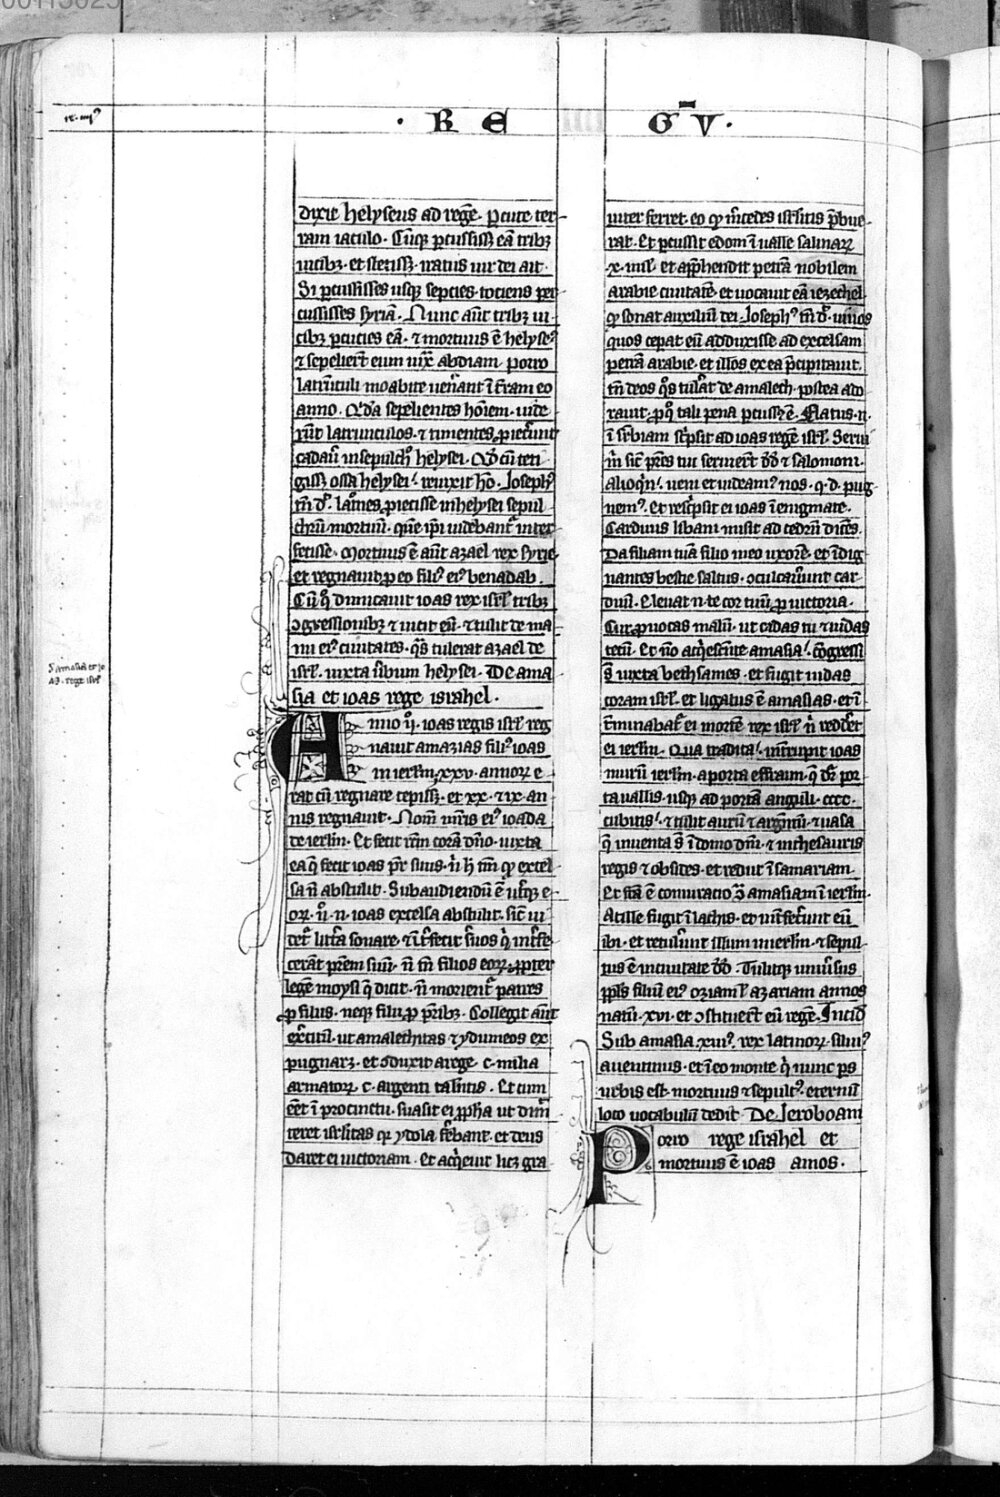 00113025
· R E G̅ V ·
dixit helyseus ad regē· ꝑcute ter-
ram iaculo· Cūqꝫ ꝑcussissꝫ eā tribꝫ
uicibꝫ· et stetissꝫ· iratus uir dei ait·
Si ꝑcussisses usqꝫ septies· tociens per
cussisses syriā· Nunc aūt tribꝫ ui
cibꝫ ꝑcuties eā· ⁊ mortuus ē helyseꝰ
⁊ sepelierūt eum iuxͣ abdiam· porro
latrūculi moabite uen̄ant ī t̄ram eo
anno· Qͥdā sepelientes hoīem· uide
rūt latrunculos· ⁊ timentes ꝓiec̄unt
cadau̅ in sepulchͦ helysei· Qͦd cū teti
gissꝫ ossa helysei· reuixit hō· Josephꝰ
tn̄ dt̄· latrōnes ꝓiecisse in helysei sepul
chrū mortuū· quē ip̄i uidebant̄ inter
fecisse· Mortuus ē aūt azael rex syrie
et regnauit ꝓ eo filiꝰ eiꝰ benadab·
Cū qͦ dimicauit ioas rex isrl̄ tribꝫ
ꝯgressionibꝫ ⁊ uicit eū· ⁊ tulit de ma
nu eiꝰ ciuitates· qͣs tulerat azael de
isrl̄· iuxta uerbum helysei· De ama
sia et ioas rege israhel·
Anno ii· ioas regis isrl̄ reg
nauit amazias filiꝰ ioas
in ierlm̄· xxv· annoꝝ e
rat cū regnare cepissꝫ· et xx· ⁊ ix· an
nis regnauit· Nom̄ mr̄is eiꝰ ioada
de ierlm̄· Et fecit rc̄m corā dn̄o· iuxta
ea q̄ fecit ioas pr̄ suus· n̄ h̄ tm̄ qꝫ excel
sa n̄ abstulit· Subaudiendū ē ut̄qꝫ e
oꝝ· n̄ n̄· ioas excelsa abstulit· sic̄ ui
det̄ litt̄a sonare· ⁊ īt̄fecit s̄uos qͥ int̄fe
cerāt pr̄em suū· n̄ tn̄ filios eoꝝ ꝓpter
legē moysi q̄ dicit· n̄ morient̄ patres
ꝓ filiis· neqꝫ filii ꝓ pr̄ibꝫ· Collegit aūt
ex̄citū· ut amalechitas ⁊ ydumeos ex
pugnarꝫ· et ꝯduxit a rege c· milia
armatoꝝ c· argenti talentis· Et cum
eēt ī procinctu· suasit ei ꝓph̄a ut dim̄
teret isrl̄itas qꝛ ydola c̄bant· et deus
daret ei uictoriam· Et acq̄euit licꝫ gra
uiter ferret· eo qꝫ m̄cedes isrl̄itis p̄bue-
rat· Et ꝑcussit edom ī ualle salinaꝝ
x· mil̄· et app̄hendit petrā nobilem
arabie ciuitatē· et uocauit eā iezechel
qꝫ sonat auxiliū dei· Josephꝰ tn̄ dt̄· uiuos
quos cepat eū adduxisse ad excelsam
petrā arabie· et illos ex ea p̄cipitauit·
tn̄ deos qͦs tul̄at de amalech· postea ado
rauit· ꝓ qͦ tali pena ꝑcussꝰ ē· Elatus· n̄·
ī suꝑbiam sc̄psit ad ioas regē isrl̄· Serui
m̄ sic̄ pr̄es tui seruierūt dd̄ ⁊ salomoni·
alioqͥn· ueni et uideamꝰ nos· q· d· pug
nemꝰ· Et resc̄psit ei ioas ī enigmate·
Carduus libani misit ad cedrū dicēs·
Da filiam tuā filio meo uxorē· et īdig
nantes bestie saltus· ꝯculcau̅unt car
duū· Eleuat̄ n̄ te cor tuū ꝓ uictoria·
Cur ꝓuocas malū· ut cadas tu ⁊ iudas
tecū· Et nō acq̄escente amasia· ꝯgressi
s̄ iuxta bethsames· et fugit iudas
coram isrl̄· et ligatus ē amasias· et ī
t̄minabat̄ ei mortē rex isrl̄ n̄ redd̄et
ei ierlm̄· Qua tradita· int̄rupit ioas
murū ierlm̄· a porta effraim· q̄ dr̄ por
ta uallis· usqꝫ ad portā anguli· cccc·
cubitis· ⁊ tulit aurū ⁊ argentū· ⁊ uasa
q̄ inuenta s̄ ī domo dn̄i· ⁊ in thesauris
regis ⁊ obsides· et rediit ī samariam·
Et fc̄a ē coniuratio ꝯ̄ amasiam ī ierlm̄·
At ille fugit ī lachis· et int̄fec̄unt eū
ibi· et retul̄unt illum in ierlm̄· ⁊ sepul-
tus ē in ciuitate dd̄· Tulitqꝫ uniū̄sus
ppl̄s filiū eiꝰ oziam ł azariam annos
natū· xvi· et ꝯstituer̄t eū regē· Incid̄
Sub amasia xiiiꝰ· rex latinoꝝ· siluiꝰ
auentinus· et ī eo monte qͥ nunc ps
urbis est· mortuus ⁊ sepultꝰ· eternū
loco uocabulū dedit· De Jeroboam
Porro rege israhel et
mortuus ē ioas amos·